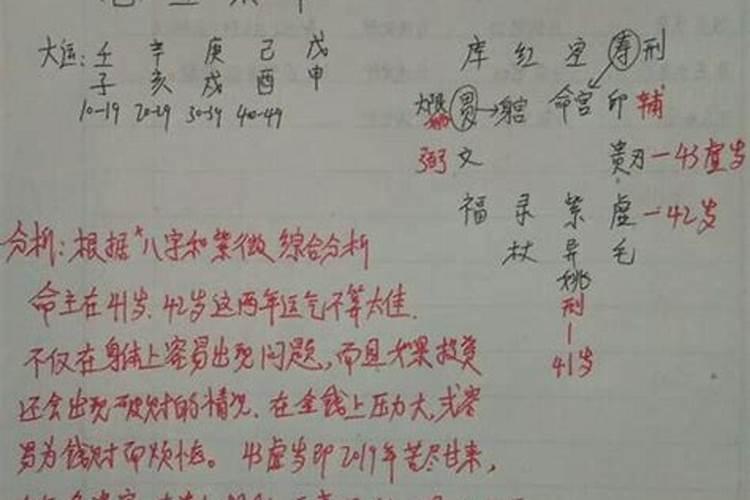 大运: 壬 辛 庚 己 戊
子 亥 戌 酉 申
10-19 20-29 30-39 40-49
库 红 空 寿 刑
大限 贯→ 命宫 印 辅
弼 文 贵 刃-43虚岁
福 录 紫 虚-42岁
杖 异 毛
姚
刑
41岁
分析:根据"八字和紫微综合分析
命主在41岁、42岁这两年运气不算太佳.
不仅在身体上容易出现问题,而且如果投资
还会出现破财的情况、在金钱上压力大,或容
易为钱财而烦恼。 43虚岁即2019年苦尽甘来,